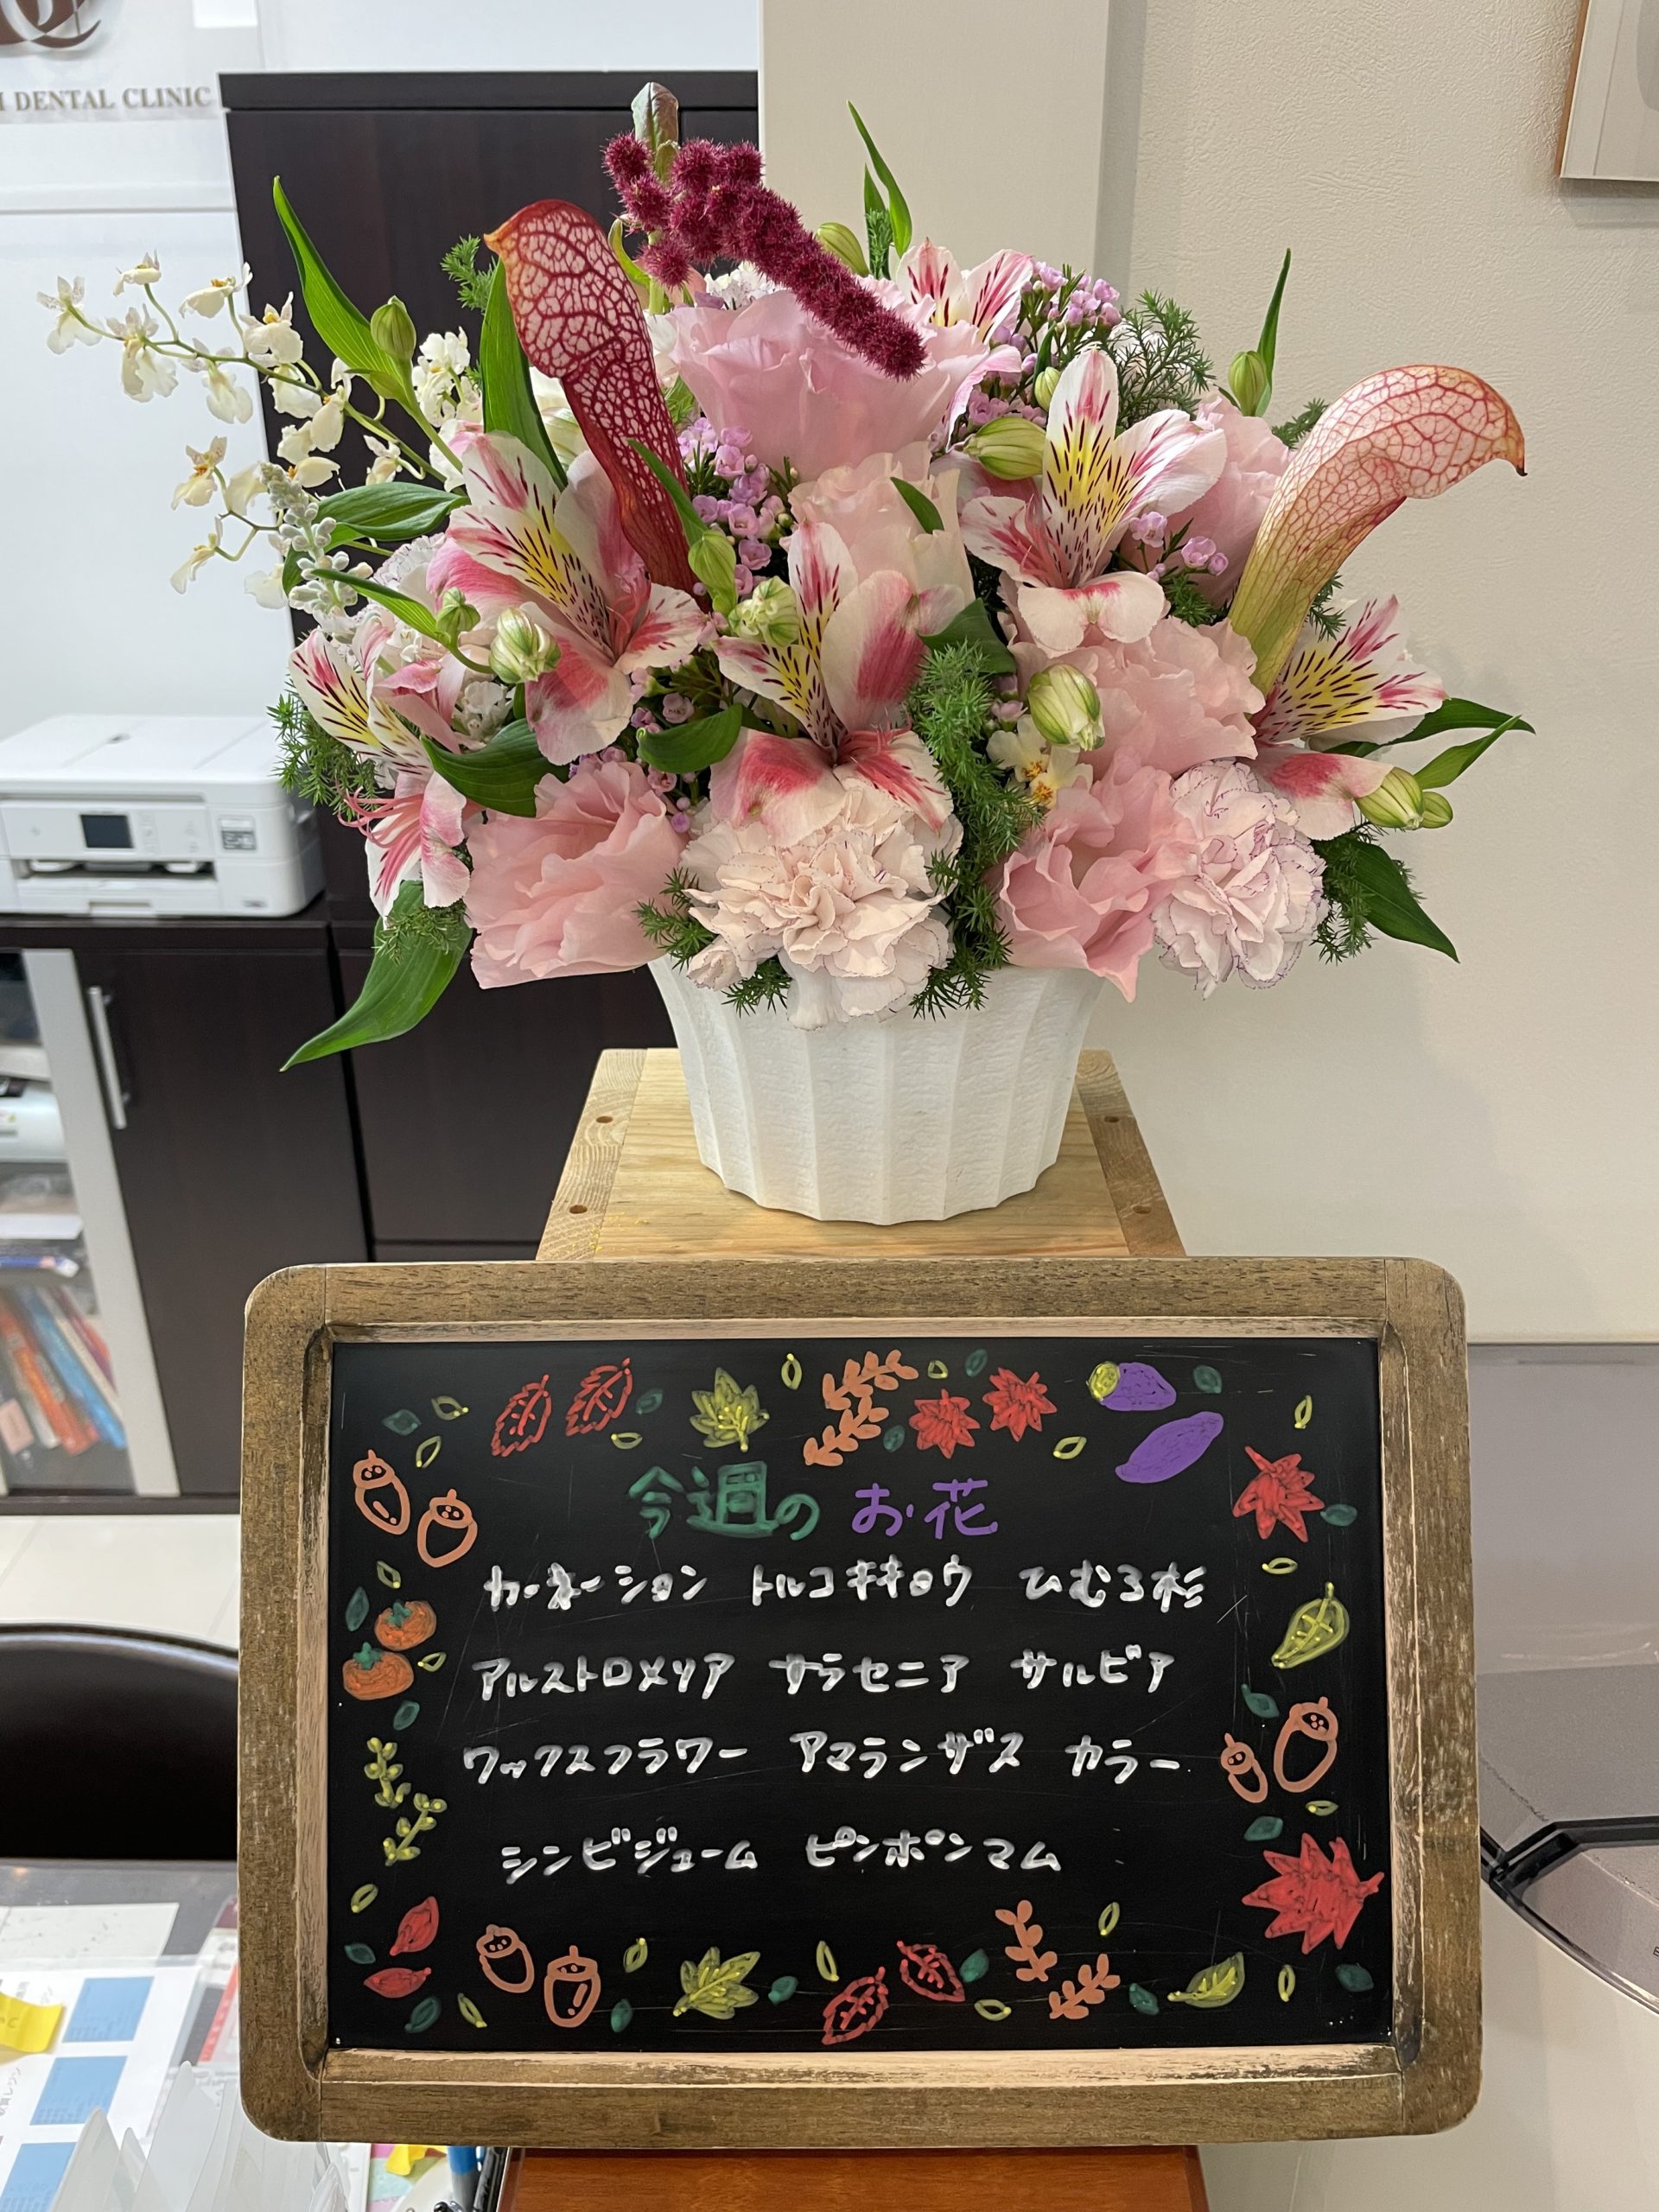 DENTAL CLINIC
今週のお花
カーネーション トルコキキョウ ひむろ杉
アルストロメリア サラセニア サルビア
ワックスフラワー アマランサス カラー
シンビジューム ピンポンマム